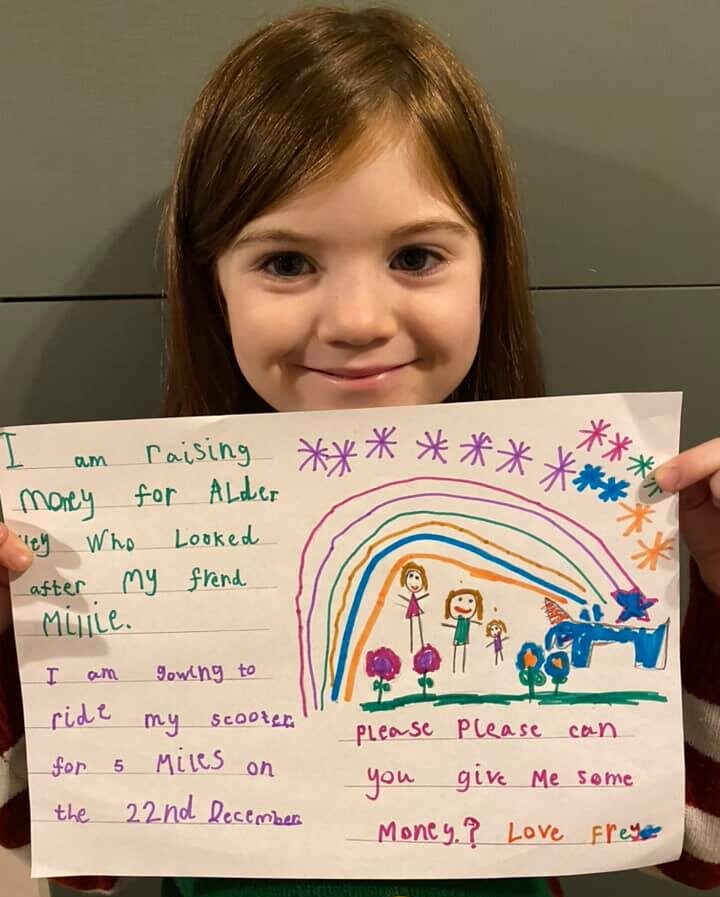 I am raising
money for ALder
Hey Who Looked
after my frend
Millie.
I am gowing to
ride my scooter
for 5 Miles on
the 22nd December
Please Please can
you give Me some
Money.? Love Freya